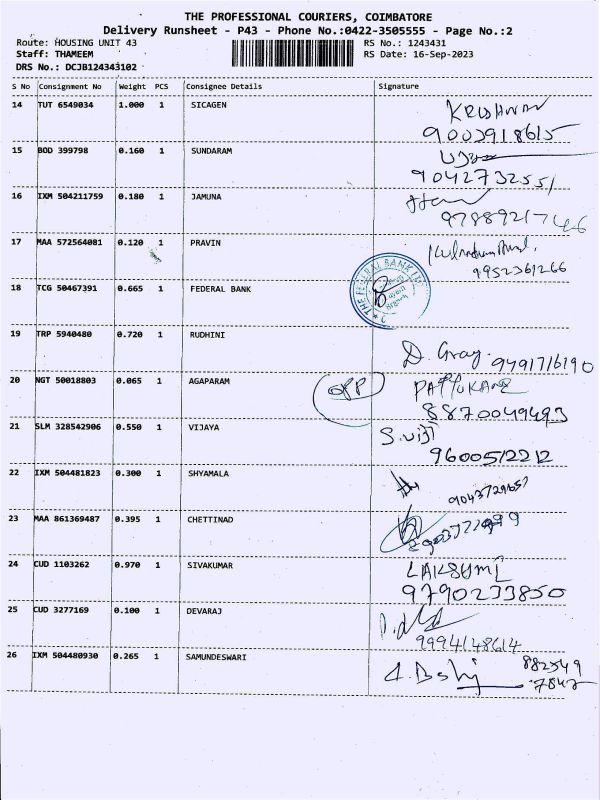 THE PROFESSIONAL COURIERS, COIMBATORE
Delivery Runsheet - P43 - Phone No.:0422-3505555 - Page No.:2
Route: HOUSING UNIT 43 RS No.: 1243431
Staff: THAMEEM RS Date: 16-Sep-2023
DRS No.: DCJB124343102
S No Consignment No Weight PCS Consignee Details Signature
14 TUT 6549034 1.000 1 SICAGEN KRISHNAN
9003918615
15 BOD 399798 0.160 1 SUNDARAM
9042732551
16 IXM 504211759 0.180 1 JAMUNA
9788921746
17 MAA 572564081 0.120 1 PRAVIN
9952361266
18 TCG 50467391 0.665 1 FEDERAL BANK THE FEDERAL BANK LTD
19 TRP 5940480 0.720 1 RUDHINI
D. Gray. 9491716190
20 NGT 50018803 0.065 1 AGAPARAM OPP
8870049493
21 SLM 328542906 0.550 1 VIJAYA S. viji
9600512212
22 IXM 504481823 0.300 1 SHYAMALA
9043729657
23 MAA 861369487 0.395 1 CHETTINAD
24 CUD 1103262 0.970 1 SIVAKUMAR LAKSHMI
9790233850
25 CUD 3277169 0.100 1 DEVARAJ
9994148614
26 IXM 504480930 0.265 1 SAMUNDESWARI 882549
7847